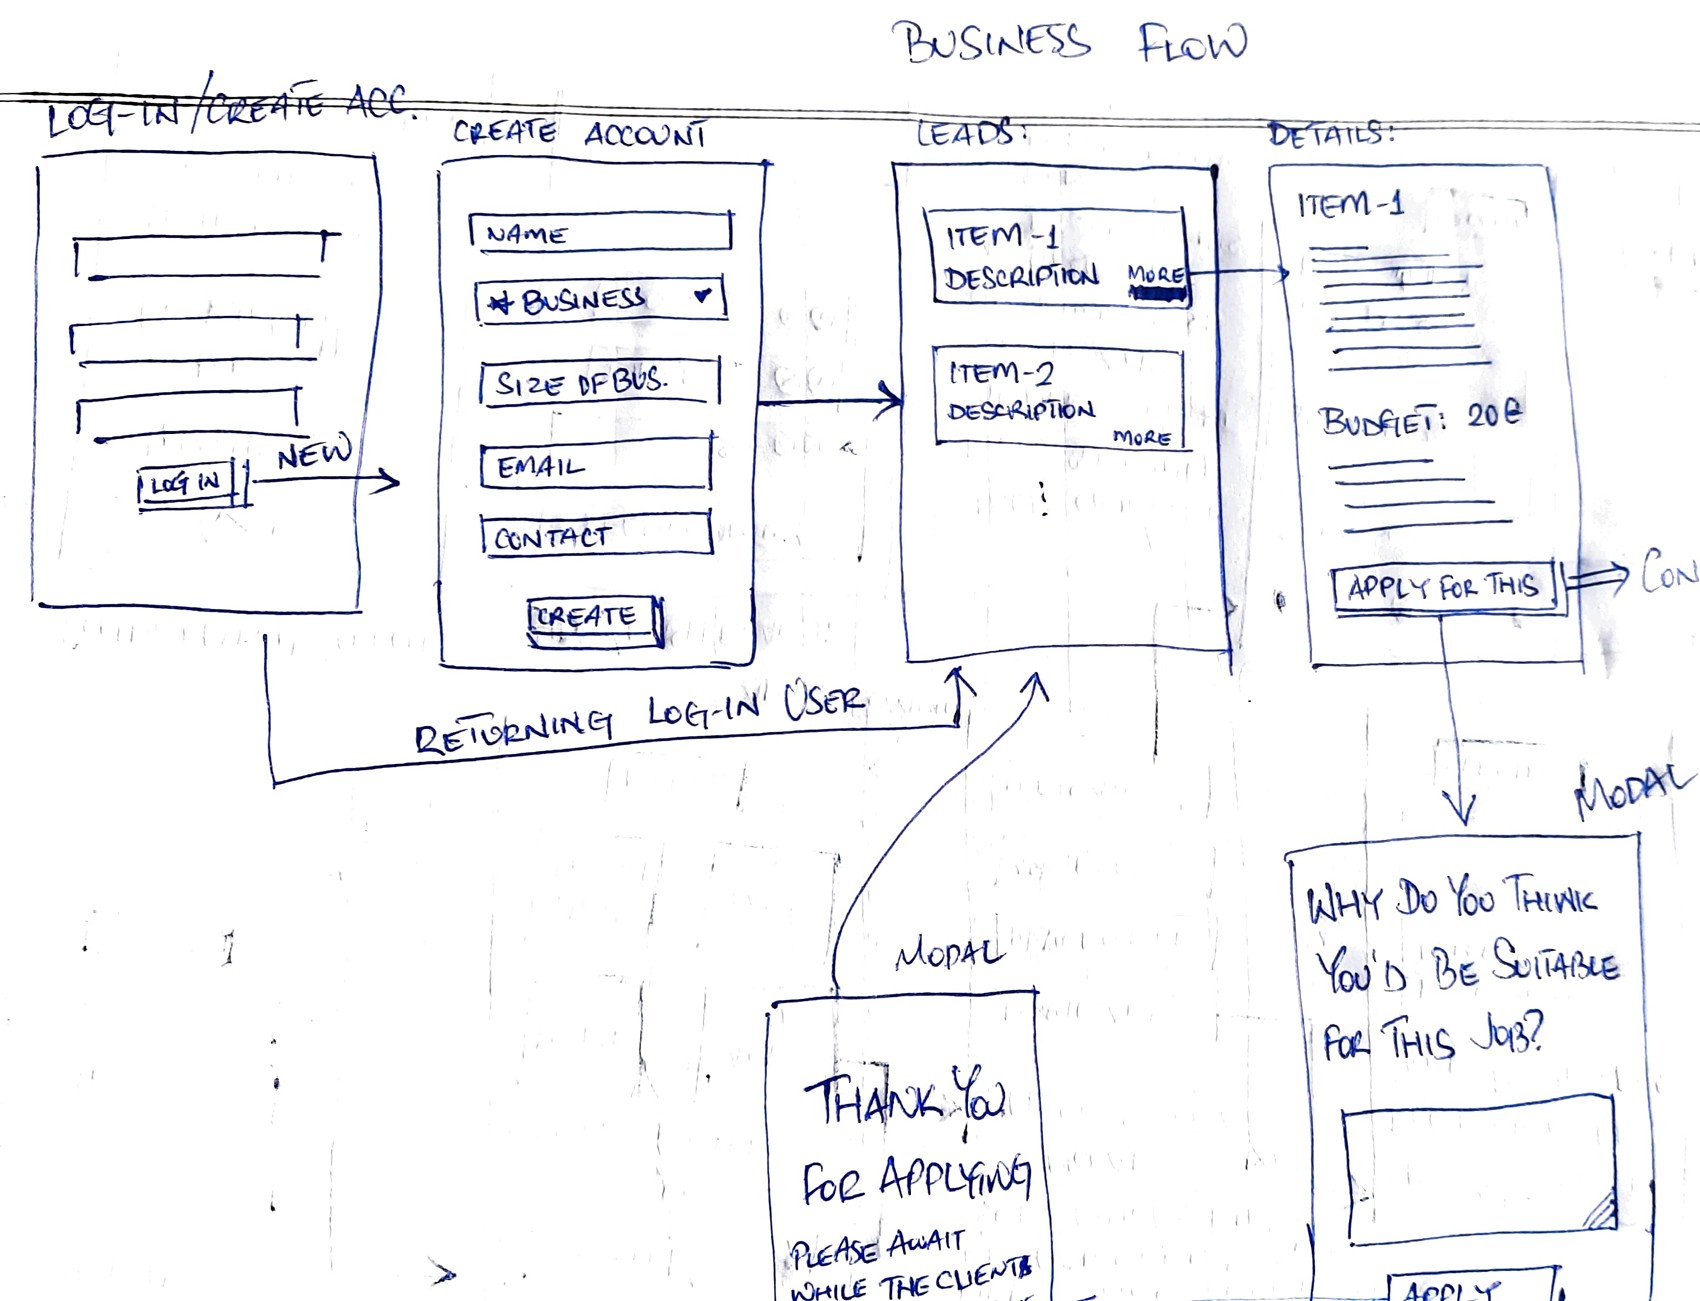 BUSINESS FLOW
LOG-IN/CREATE ACC.
LOG IN
NEW
CREATE ACCOUNT
NAME
BUSINESS
SIZE OF BUS.
EMAIL
CONTACT
CREATE
LEADS:
ITEM-1
DESCRIPTION MORE
ITEM-2
DESCRIPTION
MORE
DETAILS:
ITEM-1
BUDGET: 20€
APPLY FOR THIS
CON
RETURNING LOG-IN USER
MODAL
WHY DO YOU THINK
YOU'D BE SUITABLE
FOR THIS JOB?
APPLY
MODAL
THANK YOU
FOR APPLYING
PLEASE AWAIT
WHILE THE CLIENT